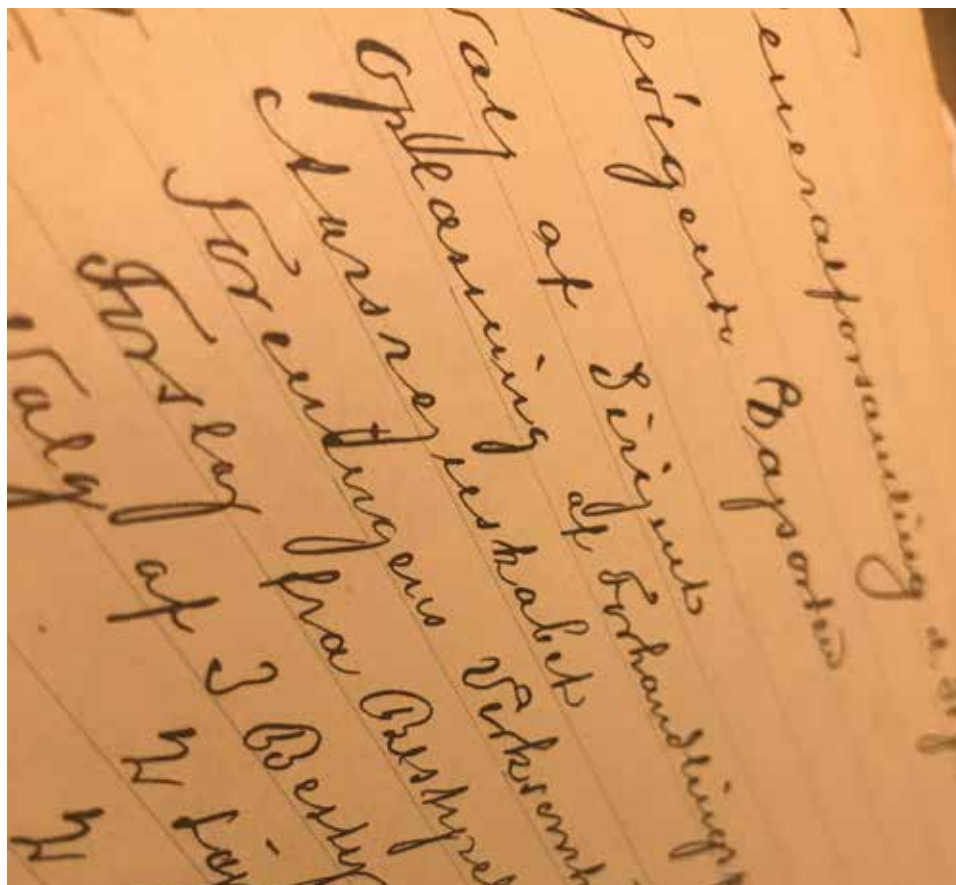 Generalforsamling d.
følgende Dagsorden
Valg af Dirigent
Oplæsning af Forhandlings
Aarsregnskabet
Foreningens Virksomh
Forslag fra Bestyrel
Valg af 3 Besty
" 2
" 2